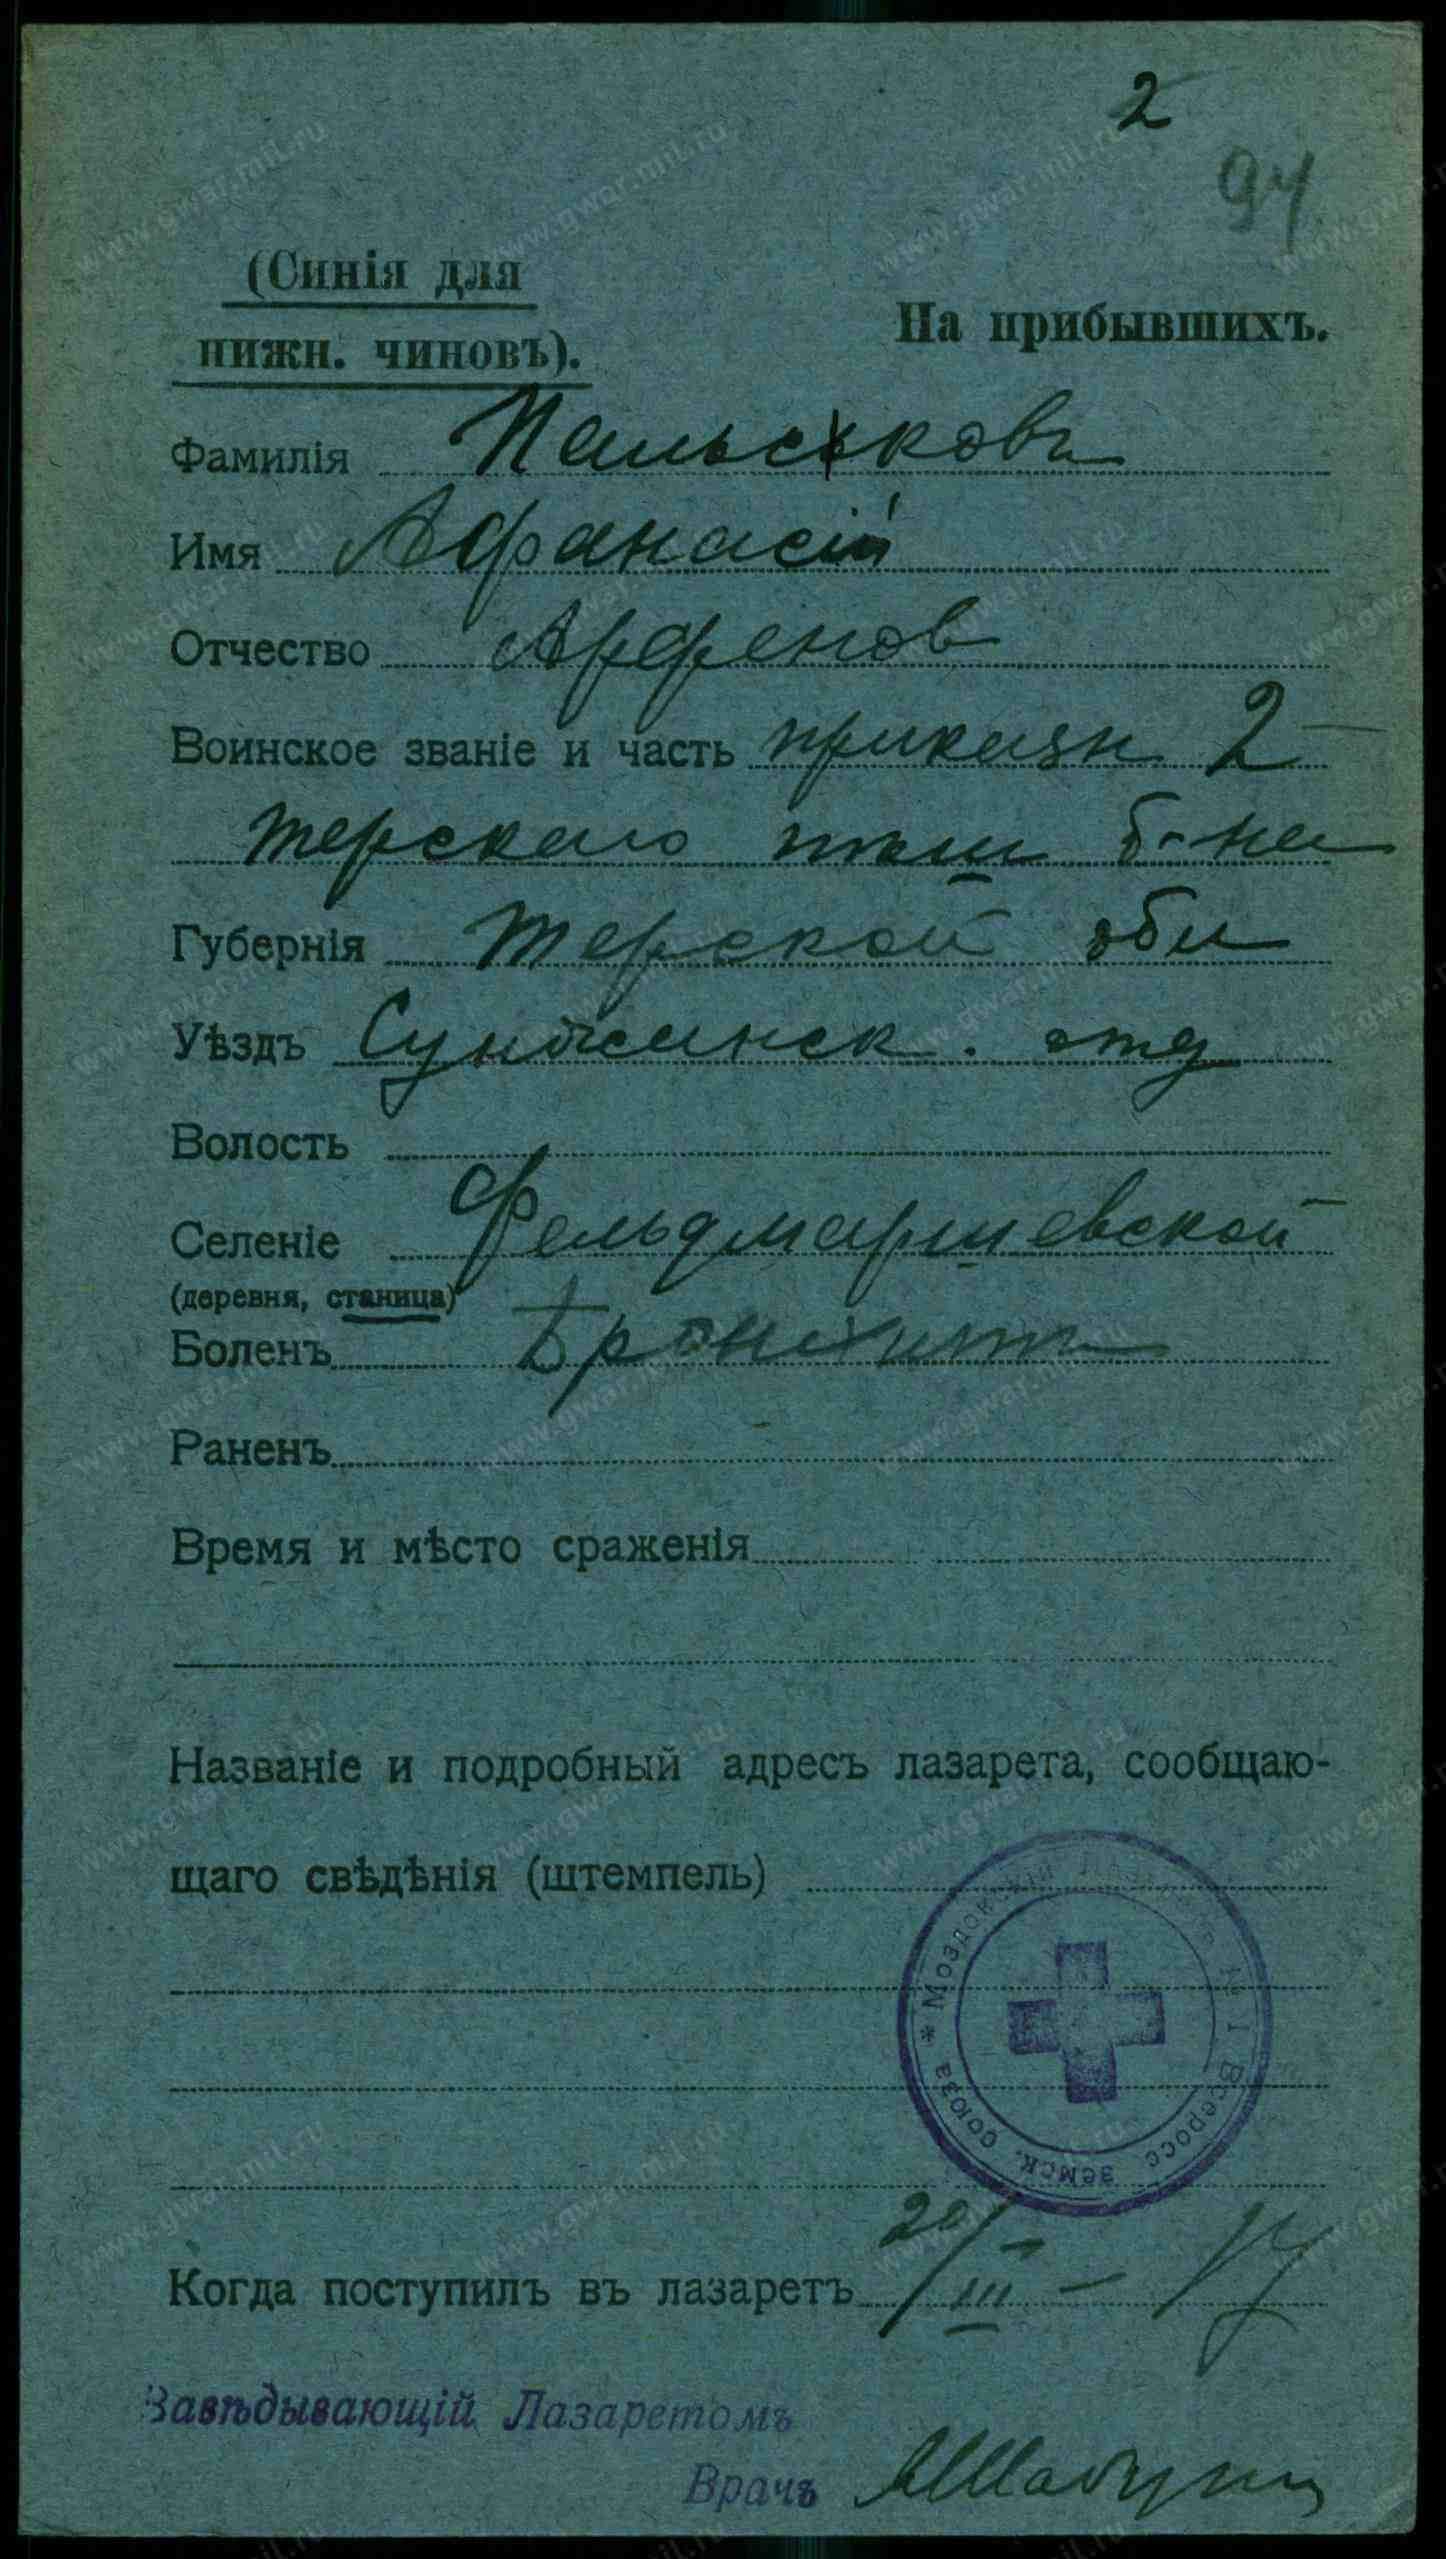 2
94
(Синія для
нижн. чиновъ).
На прибывшихъ.
Фамилія Пальсковъ
Имя Афанасій
Отчество Арфенов
Воинское званіе и часть приказн 2
терскаго пласт б-на
Губернія Терской обл
Уѣздъ Сунженск. отд
Волость
Селеніе Фельдмаршевской
(деревня, станица)
Боленъ Бронхитъ
Раненъ
Время и мѣсто сраженія
Названіе и подробный адресъ лазарета, сообщаю-
щаго свѣдѣнія (штемпель)
* Моздокскій Лазаретъ № 1 Всеросс земск. союза
Когда поступилъ въ лазаретъ 20/III – 17
Завѣдывающій Лазаретомъ
Врачъ
www.gwar.mil.ru